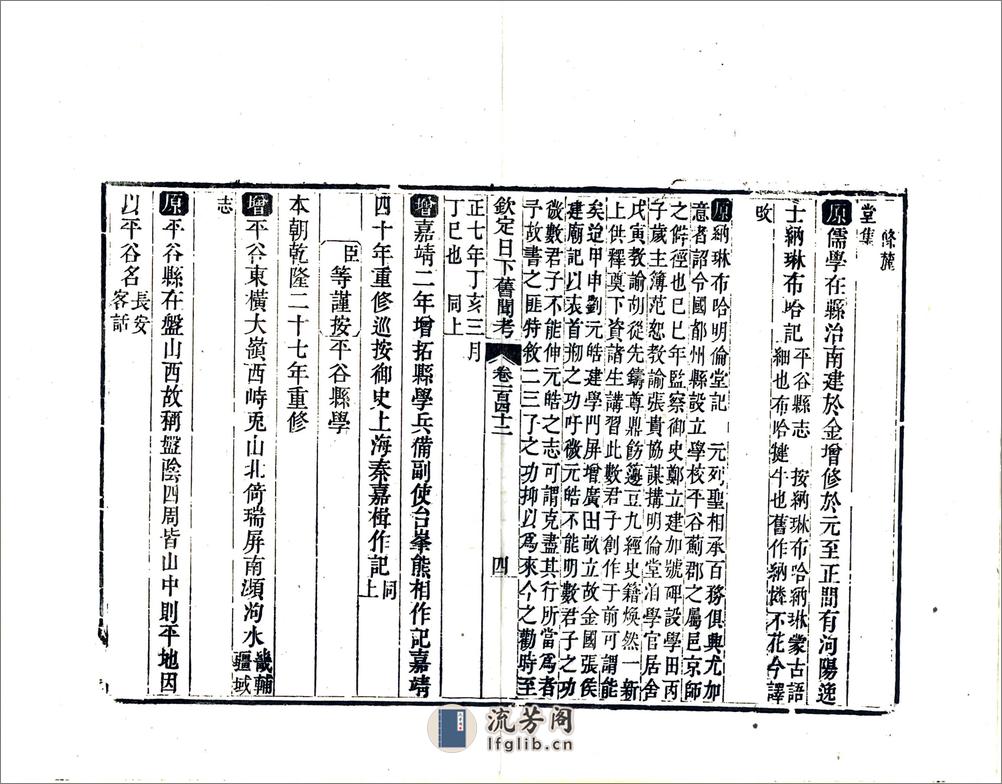 堂集 條麓
原儒學在縣治南建於金增修於元至正間有河陽逸
士納琳布哈記 平谷縣志 按納琳布哈納琳蒙古語
細也布哈犍牛也舊作納憐不花今譯
改
原納琳布哈明倫堂記 元列聖相承百務俱興尤加
意者詔令國都州縣設立學校平谷薊郡之屬邑京師
之偕徑也巳巳年監察御史鄭立建加號碑設學田丙
子歲主簿范恕教諭張貴協謀搆明倫堂洎學官居舍
戊寅教諭胡從先鑄尊鼎飭籩豆九經史籍煥然一新
上供釋奠下資諸生講習此數君子創作于前可謂能
矣迨甲申劉元皓建學門屏增廣田畝立故金國張侯
建廟記以表首剏之功吁微元皓不能明數君子之功
微數君子不能伸元皓之志可謂克盡其行所當為者
予故書之匪特敘二三子之功抑以為來今之勸時至
欽定日下舊聞考 卷一百四十二 四
正七年丁亥三月
丁巳也 同上
增嘉靖二年增拓縣學兵備副使台峯熊相作記嘉靖
四十年重修巡按御史上海秦嘉楫作記 同上
臣等謹按平谷縣學
本朝乾隆二十七年重修
增平谷東橫大嶺西峙兎山北倚瑞屏南瀕泃水 畿輔疆域
志
原平谷縣在盤山西故稱盤陰四周皆山中則平地因
以平谷名 長安客話
流芳阁
lfglib.cn